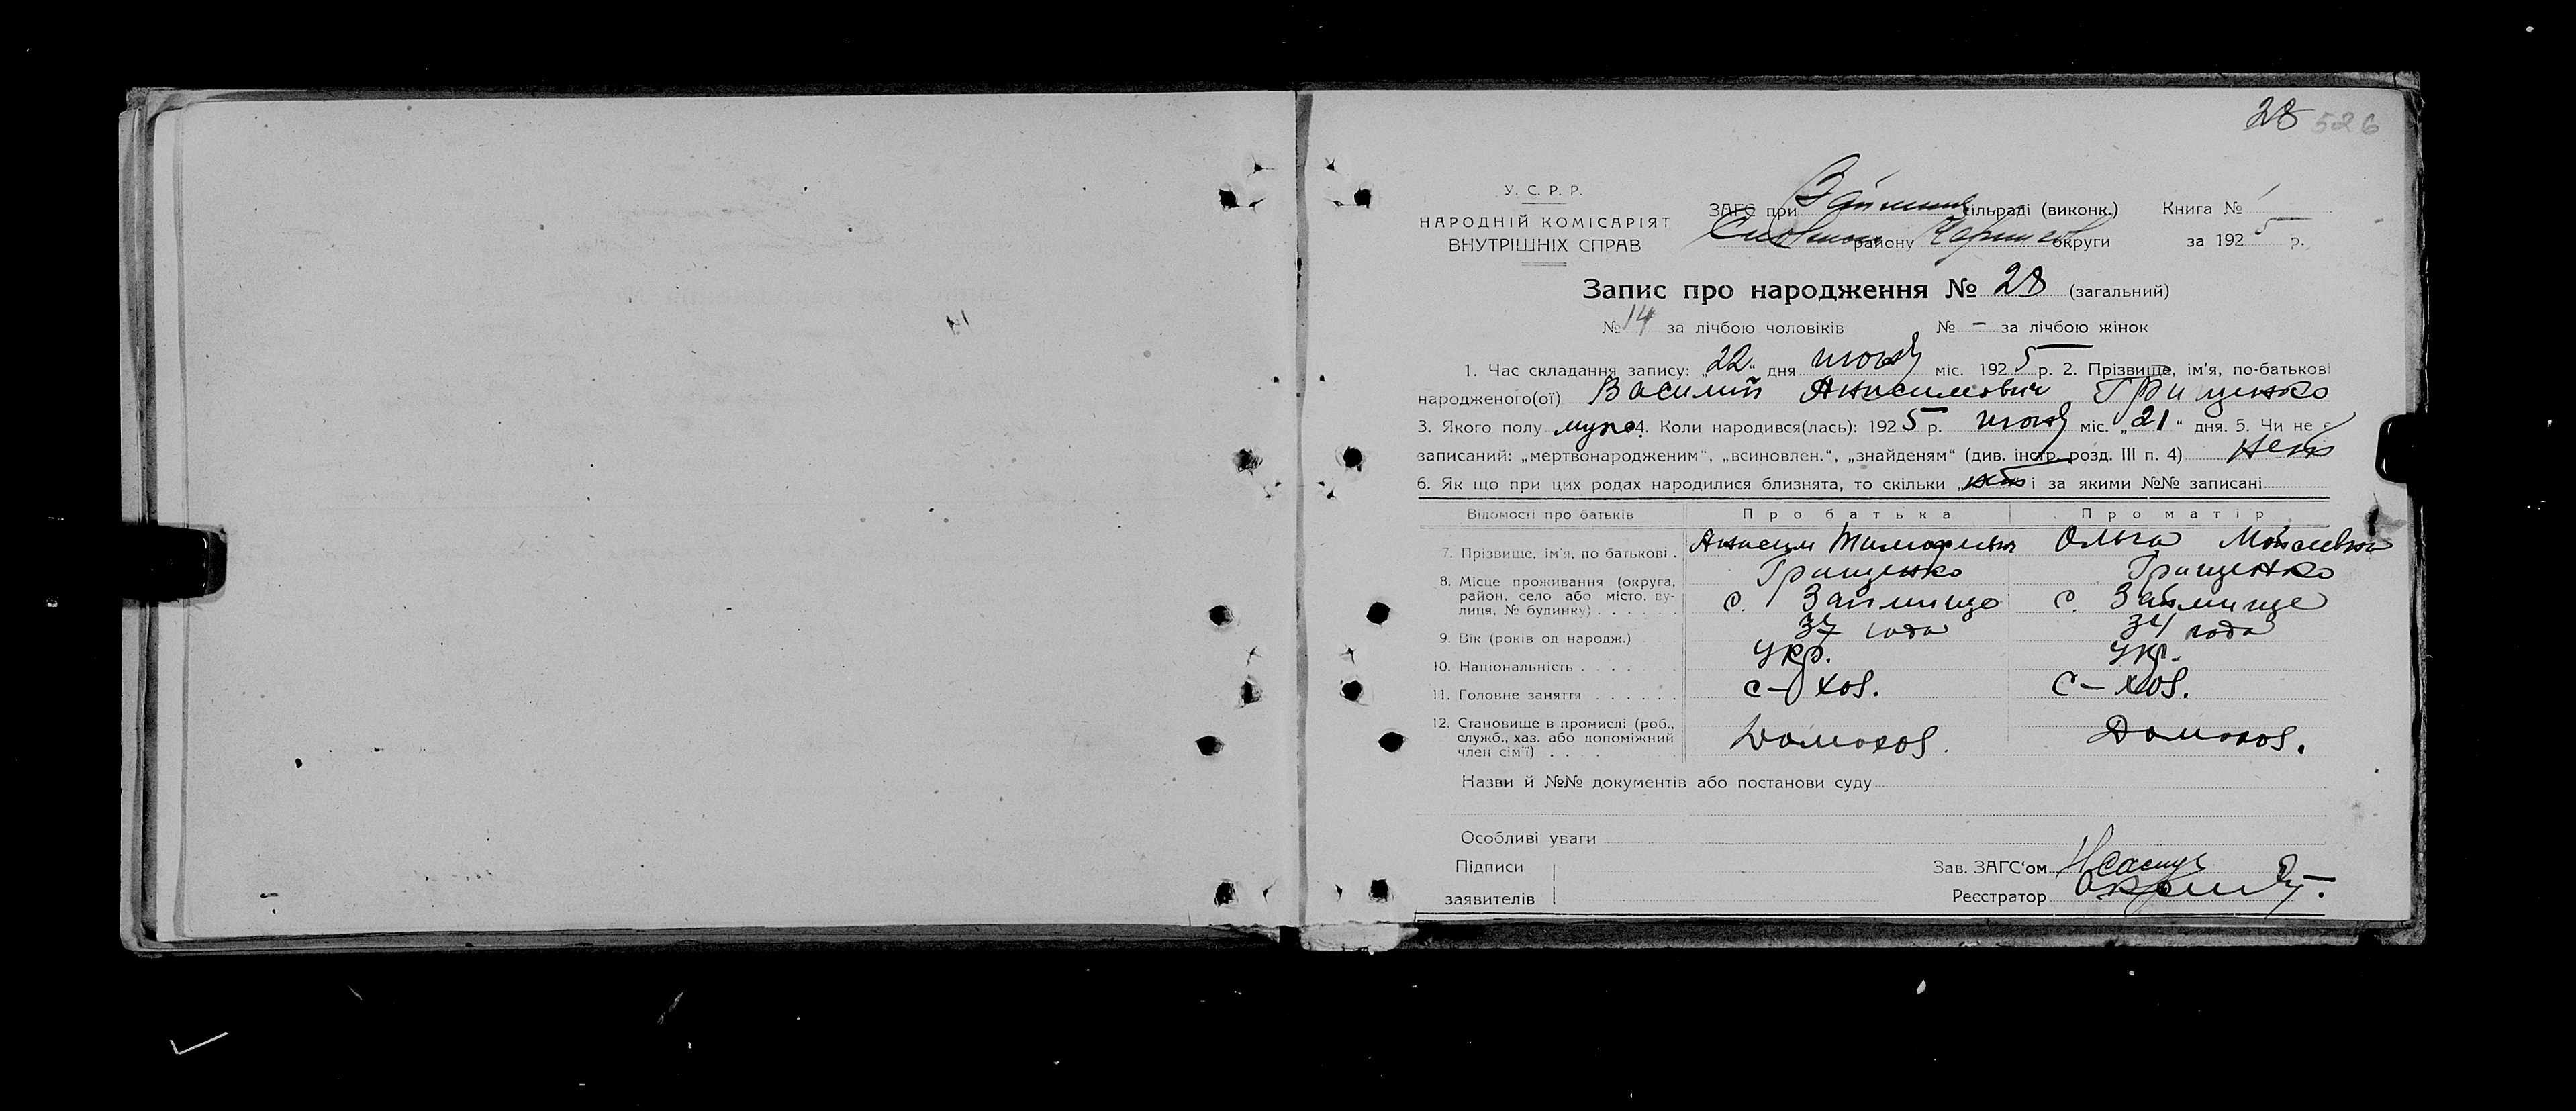 28 526
У. С. Р. Р.
НАРОДНІЙ КОМІСАРІЯТ
ВНУТРІШНІХ СПРАВ
ЗАГС при сільраді (виконк.) Книга № 1
району округи за 1925 р.
Запис про народження № 28 (загальний)
№ 14 за лічбою чоловіків № – за лічбою жінок
1. Час складання запису: „22“ дня міс. 1925 р. 2. Прізвище, ім'я, по-батькові
народженого(ої) Василий Анисимович Грищенко
3. Якого полу муж. 4. Коли народився(лась): 1925 р. міс. „21“ дня. 5. Чи не є
записаний: „мертвонародженим“, „всиновлен.“, „знайденям“ (див. інстр. розд. III п. 4) нет
6. Як що при цих родах народилися близнята, то скільки „ і за якими №№ записані
Відомості про батьків Про батька Про матір
7. Прізвище, ім'я, по батькові . Анисим Тимофеевич Грищенко Ольга Моисеевна Грищенко
8. Місце проживання (округа,
район, село або місто, ву-
лиця, № будинку) . . . . . . с. Займище с. Займище
9. Вік (років од народж.) 37 года 34 года
10. Національність . . . . Укр. Укр.
11. Головне заняття . . . . . . с–хоз. с–хоз.
12. Становище в промислі (роб.,
служб., хаз. або допоміжний
член сім'ї) . . . Домохоз. Домохоз.
Назви й №№ документів або постанови суду
Особливі уваги
Підписи Зав. ЗАГС'ом
заявителів Реєстратор